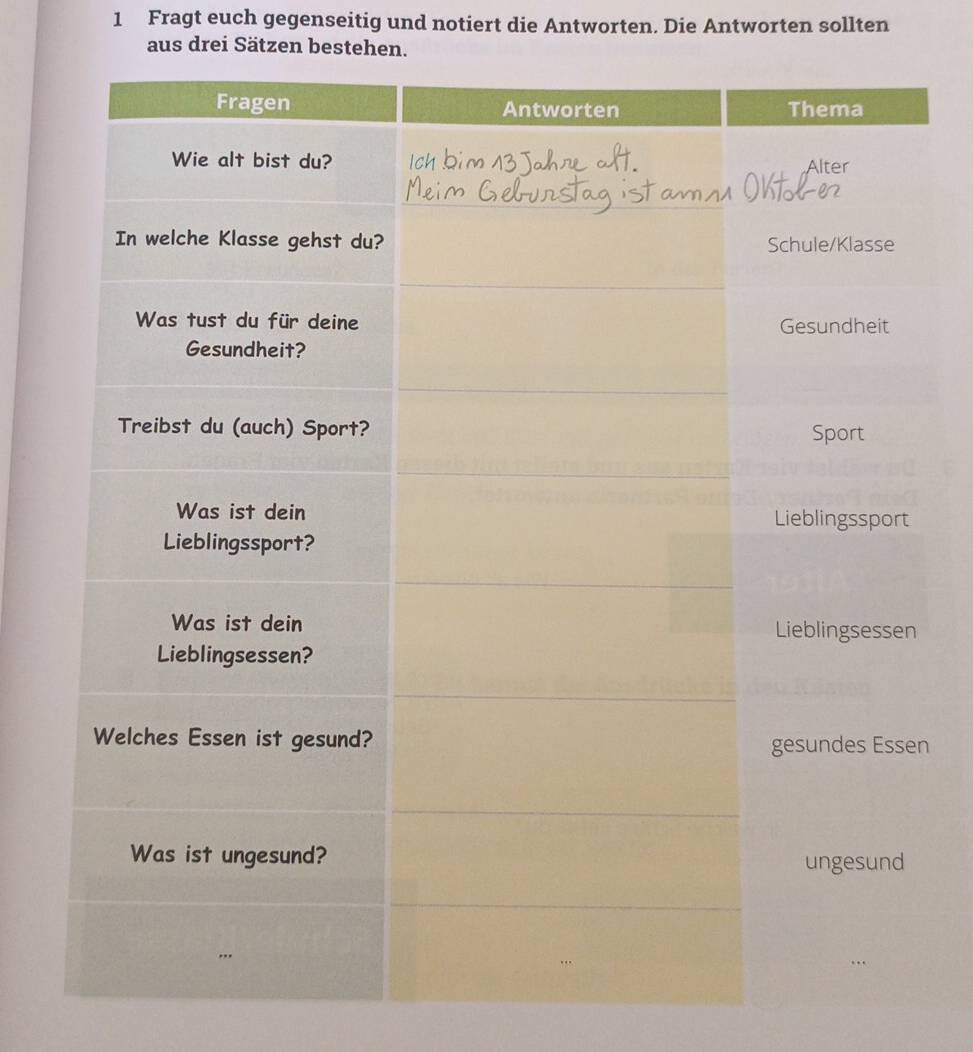 1 Fragt euch gegenseitig und notiert die Antworten. Die Antworten sollten
aus drei Sätzen bestehen.
Fragen Antworten Thema
Wie alt bist du? Ich bin 13 Jahre alt. Alter
Mein Geburstag ist am 11 Oktober
In welche Klasse gehst du? Schule/Klasse
Was tust du für deine Gesundheit
Gesundheit?
Treibst du (auch) Sport? Sport
Was ist dein Lieblingssport
Lieblingssport?
Was ist dein Lieblingsessen
Lieblingsessen?
Welches Essen ist gesund? gesundes Essen
Was ist ungesund? ungesund
... ... ...